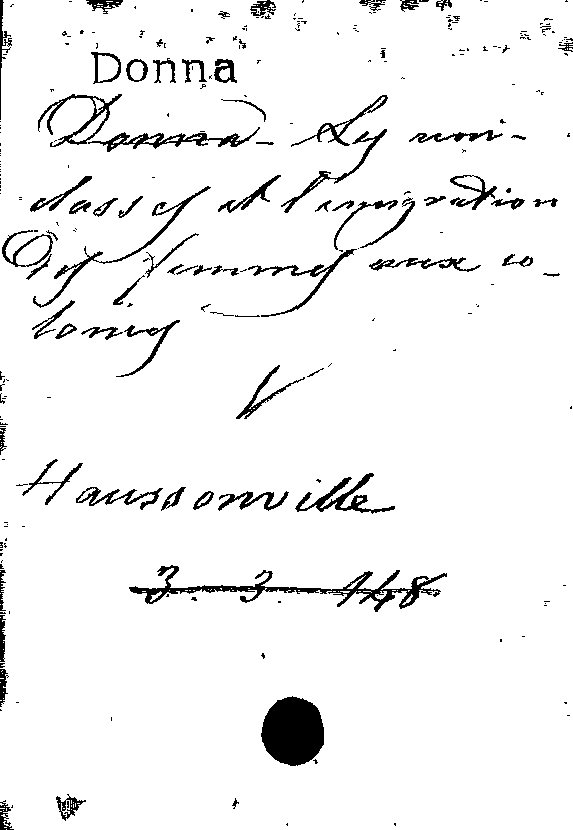 Donna
Donna - Les non-
classes et l'emigration
des femmes aux co-
lonies
V
Haussonville
3. 3. 148